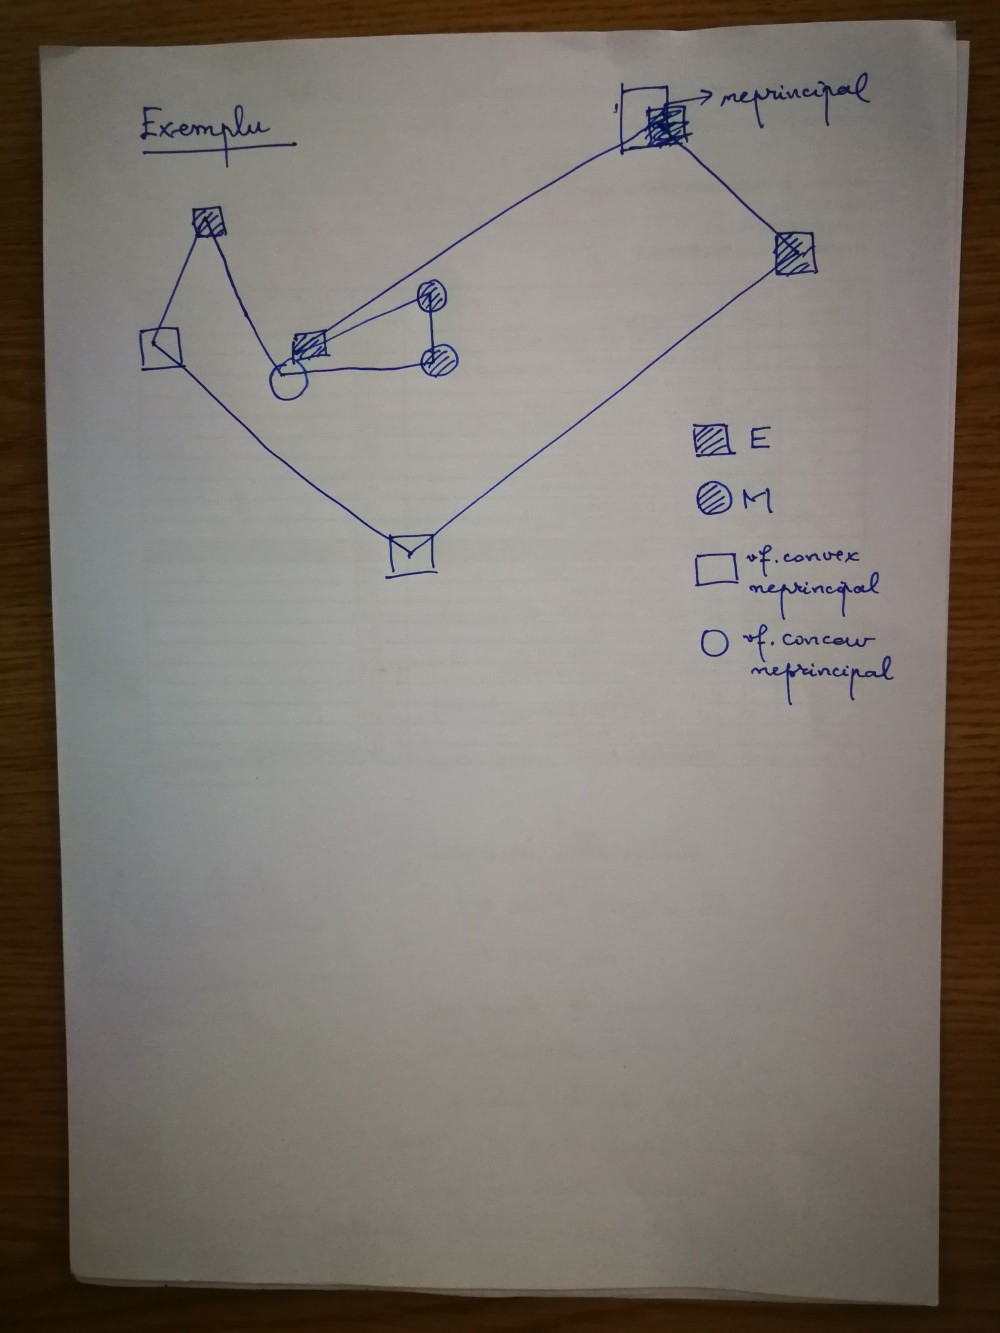 Exemplu
neprincipal
E
M
vf. convex
neprincipal
vf. concav
neprincipal